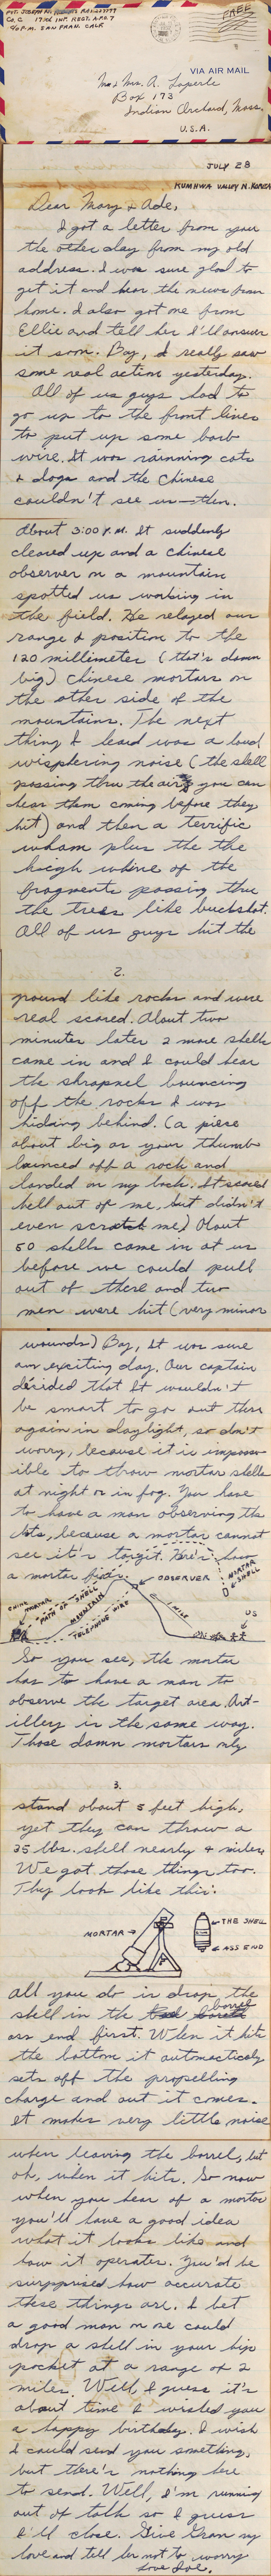 PVT. JOSEPH N.
CO. C 17TH INF. REGT. A.P.O. 7
C/O P.M. SAN FRAN. CALIF
FREE
VIA AIR MAIL
Mr & Mrs. A. Laperle
Box 173
Indian Orchard, Mass.
U.S.A.
JULY 28
KUMHWA VALLEY N. KOREA
Dear Mary & Ade,
I got a letter from you
the other day from my old
address. I was sure glad to
get it and hear the news from
home. I also got one from
Ellie and tell her I'll answer
it soon. Boy, I really saw
some real action yesterday.
All of us guys had to
go up to the front lines
to put up some barb
wire. It was rainning cats
& dogs and the Chinese
couldn't see us—then.
About 3:00 P.M. It suddenly
cleared up and a Chinese
observer on a mountain
spotted us working in
the field. He relayed our
range & position to the
120 millimeter (that's damn
big) Chinese mortars on
the other side of the
mountains. The next
thing I heard was a loud
wisphering noise (the shell
passing thru the air, you can
hear them coming before they
hit) and then a terrific
wham plus the the
high whine of the
fragments passing thru
the trees like buckshot.
All of us guys hit the
2.
ground like rocks and were
real scared. About two
minutes later 2 more shells
came in and I could hear
the shrapnel bouncing
off the rocks I was
hidding behind. (a piese
about big as your thumb
bounced off a rock and
landed on my back. It scared
hell out of me, but didn't
even scratch me) About
50 shells came in at us
before we could pull
out of there and two
men were hit (very minor
wounds) Boy, It was sure
an exciting day. Our captain
decided that It wouldn't
be smart to go out there
again in daylight, so don't
worry, because it is imposs-
ible to throw mortar shells
at night or in fog. You have
to have a man observing the
hits, because a mortar cannot
see it's target. Here's how
a mortar fires.
OBSERVER
MORTAR SHELL
CHINK MORTAR
PATH OF SHELL
MOUNTAIN
TELEPHONE WIRE
1 MILE
US
So you see, the mortar
has to have a man to
observe the target area. Art-
illery is the same way.
Those damn mortars only
3.
stand about 5 feet high,
yet they can throw a
35 lbs. shell nearly 4 miles.
We got those things too.
They look like this:
MORTAR
THE SHELL
ASS END
all you do is drop the
shell in the barrel
ass end first. When it hits
the bottom it automacticaly
sets off the propelling
charge and out it comes.
It makes very little noise
when leaving the barrel, but
oh, when it hits. So now
when you hear of a mortar
you'll have a good idea
what it looks like and
how it operates. You'd be
surpprised how accurate
these things are. I bet
a good man on one could
drop a shell in your hip
pocket at a range of 2
miles. Well, I guess it's
about time I wished you
a happy birthday. I wish
I could send you something,
but there's nothing here
to send. Well, I'm running
out of talk so I guess
I'll close. Give Gram my
love and tell her not to worry
Love Joe.